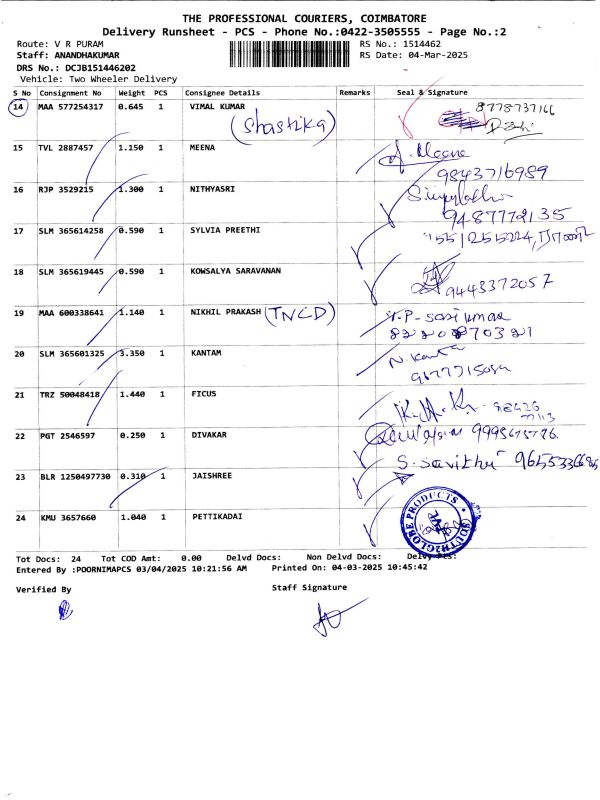 THE PROFESSIONAL COURIERS, COIMBATORE
Delivery Runsheet - PCS - Phone No.:0422-3505555 - Page No.:2
Route: V R PURAM RS No.: 1514462
Staff: ANANDHAKUMAR RS Date: 04-Mar-2025
DRS No.: DCJB151446202
Vehicle: Two Wheeler Delivery
S No Consignment No Weight PCS Consignee Details Remarks Seal & Signature
14 MAA 577254317 0.645 1 VIMAL KUMAR 8778737166
(Shastika)
15 TVL 2887457 1.150 1 MEENA
9843716989
16 RJP 3529215 1.300 1 NITHYASRI
9487772135
17 SLM 365614258 0.590 1 SYLVIA PREETHI
18 SLM 365619445 0.590 1 KOWSALYA SARAVANAN
9443372057
19 MAA 600338641 1.140 1 NIKHIL PRAKASH (TNCD) T.P. Sasikumar
20 SLM 365601325 3.350 1 KANTAM N. Kanta
21 TRZ 50048418 1.440 1 FICUS
22 PGT 2546597 0.250 1 DIVAKAR
S. Savithri
23 BLR 1250497730 0.310 1 JAISHREE
24 KMU 3657660 1.040 1 PETTIKADAI
SOUTH2GLOBE PRODUCTS
Tot Docs: 24 Tot COD Amt: 0.00 Delvd Docs: Non Delvd Docs: Delvy Pcs:
Entered By :POORNIMAPCS 03/04/2025 10:21:56 AM Printed On: 04-03-2025 10:45:42
Verified By Staff Signature